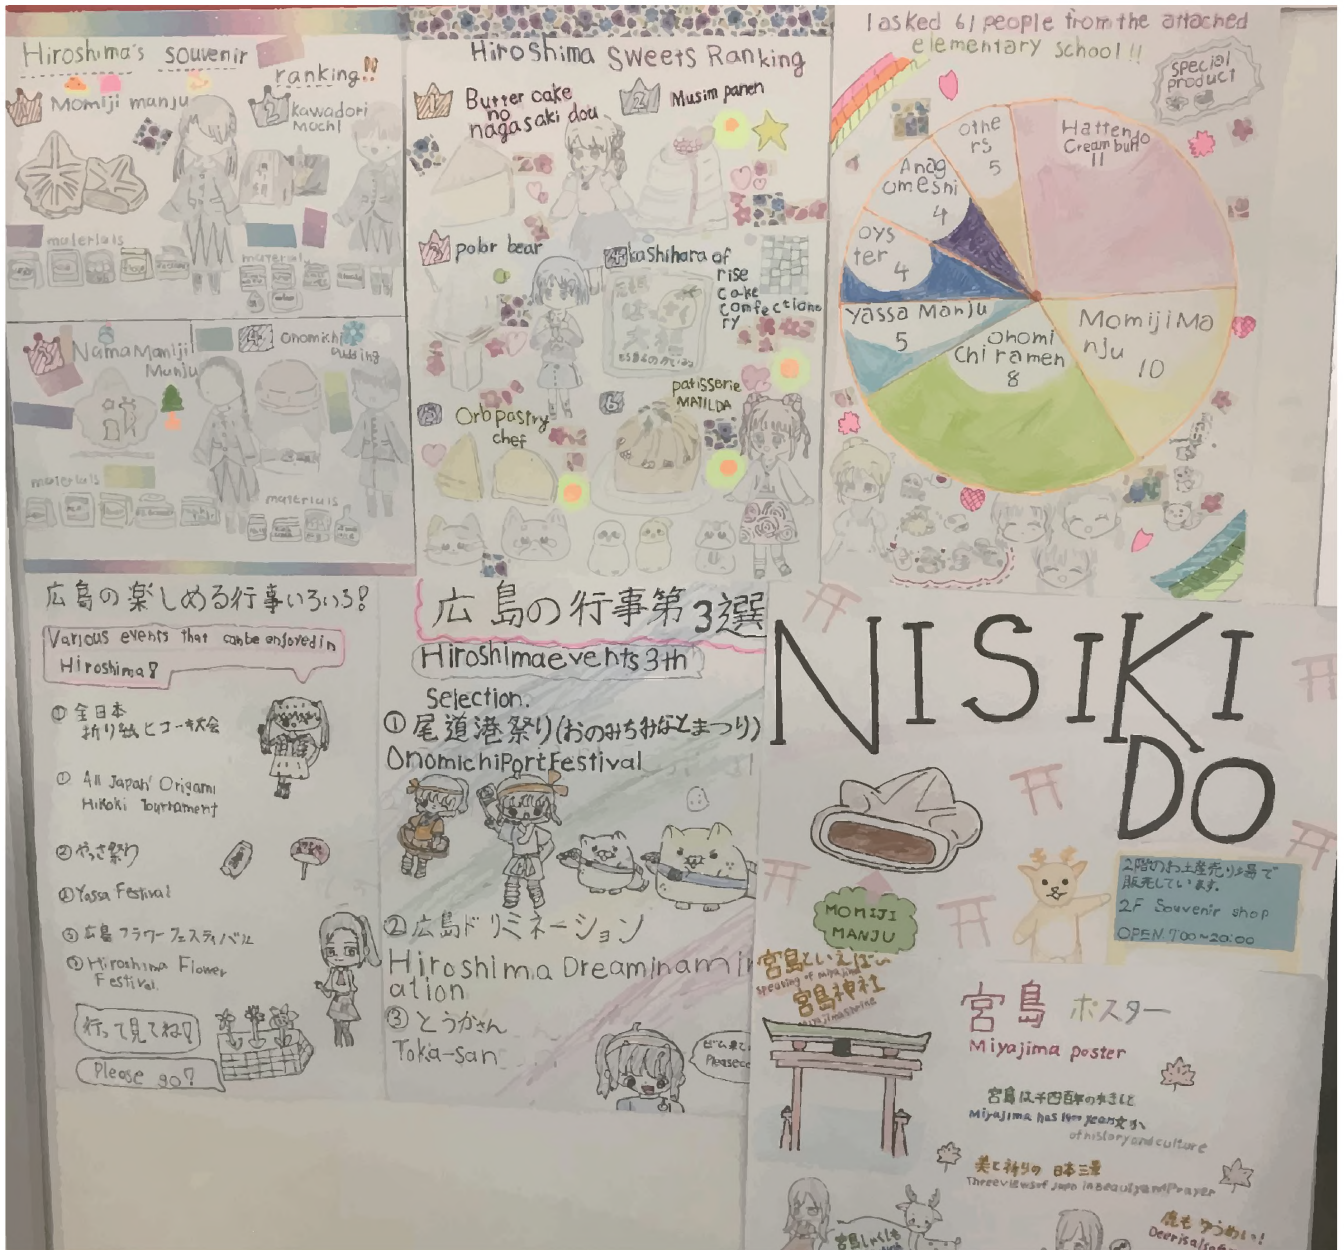 Hiroshima's souvenir
ranking!!
1
Momiji manju
2
kawadori
Mochi
materials
material
3
Nama Maniji
Munju
4
Onomichi
pudding
materials
materials
Hiroshima Sweets Ranking
1
Butter cake
no
nagasaki dou
2
Musim panen
3
polar bear
4
kashihara of
rise
cake
confectione
ry
5
Orb pastry
chef
6
patisserie
MATILDA
I asked 61 people from the attached
elementary school!!
special
product
Hattendo
Cream bun
11
Momiji Ma
nju
10
onomi
Chi ramen
8
Yassa Manju
5
oys
ter
4
Anag
omeshi
4
othe
rs
5
広島の楽しめる行事いろいろ!
Various events that canbe enjoyed in
Hiroshima!
① 全日本
折り紙ヒコーキ大会
① All Japan Origami
Hikoki Tournament
②やっさ祭り
②Yassa Festival
③広島フラワーフェスティバル
③Hiroshima Flower
Festival.
行って見てね!
Please go!
広島の行事第3選
Hiroshimaevents3th
Selection.
①尾道港祭り(おのみちみなとまつり)
OnomichiPortFestival
②広島ドリミネーション
Hiroshima Dreaminamin
ation
③とうかさん
Toka-san
Please
NISIKI
DO
MOMIJI
MANJU
2階のお土産売り場で
販売しています。
2F Souvenir shop
OPEN 7:00~20:00
宮島といえばやい
Speaking of miyajima
宮島神社
Miyajimashrine
宮島 ポスター
Miyajima poster
宮島は千四百年の歴史と
Miyajima has 1400 years
of history and culture
美と祈りの 日本三景
Three views of Japan in Beauty and Prayer
鹿も ゆうめい!
Deer is also
宮島しゃくしも